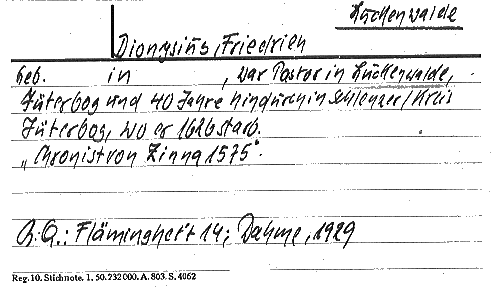 Luckenwalde
Dionysius, Friedrich
Geb. in , war Pastor in Luckenwalde,
Jüterbog und 40 Jahre hindurch in Schlenzer/Kreis
Jüterbog, wo er 1626 starb.
„Chronist von Zinna 1575“.
B.Q.: Flämingheft 14; Dahme, 1929
Reg. 10. Stichnote. 1. 50.232000. A. 803. S. 4062